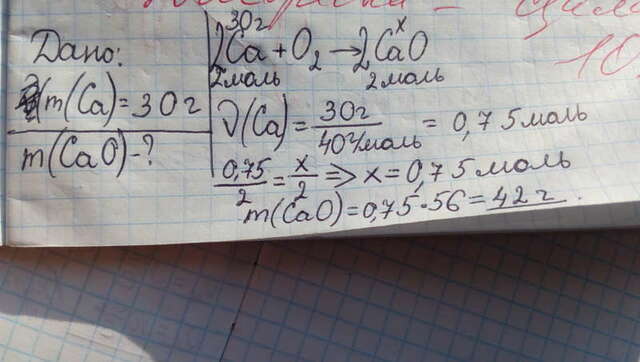 Дано:
m(Ca) = 30г
m(CaO) - ?
30г x
2Ca + O₂ → 2CaO
2моль 2моль
ν(Ca) = 30г / 40г/моль = 0,75 моль
0,75/2 = x/2 ⇒ x = 0,75 моль
m(CaO) = 0,75 · 56 = 42 г.
10